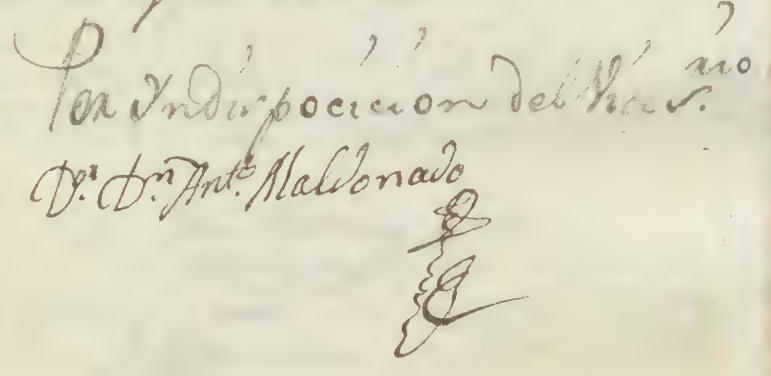 Por Yndispocicion del Vice S.rio
D.r D.n Ant.o Maldonado